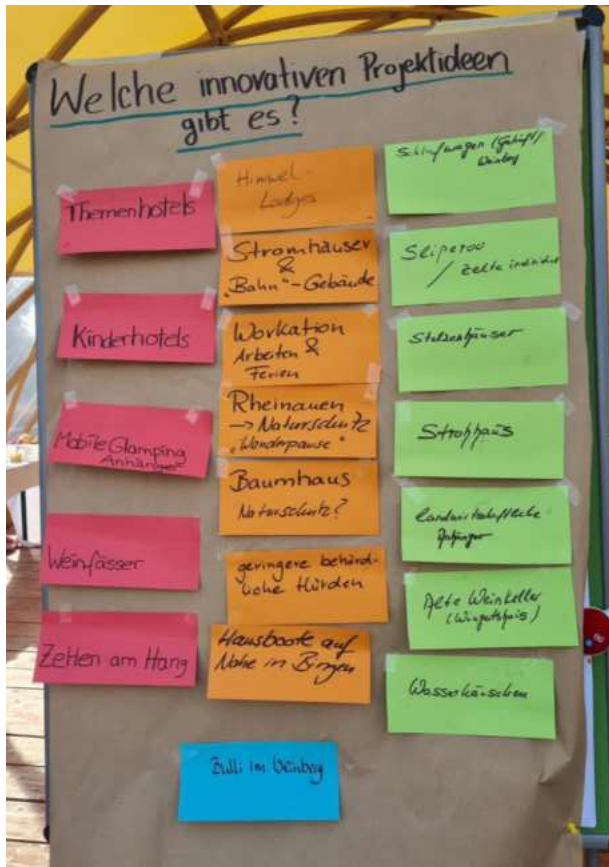 Welche innovativen Projektideen
gibt es?
Themenhotels
Kinderhotels
Mobile Glamping
Anhänger
Weinfässer
Zelten am Hang
Himmel-
Lodges
Stromhäuser
&
"Bahn"-Gebäude
Workation
Arbeiten &
Ferien
Rheinauen
→ Naturschutz
"Wanderpause"
Baumhaus
Naturschutz?
geringere behörd-
liche Hürden
Hausboote auf
Nahe in Bingen
Schlafwagen
Weinberg
Sleeperoo
/ Zelte
Stelzenhäuser
Strohhaus
Landwirtschaftliche
Anhänger
Alte Weinkeller
Wasserhäuschen
Bulli im Weinberg